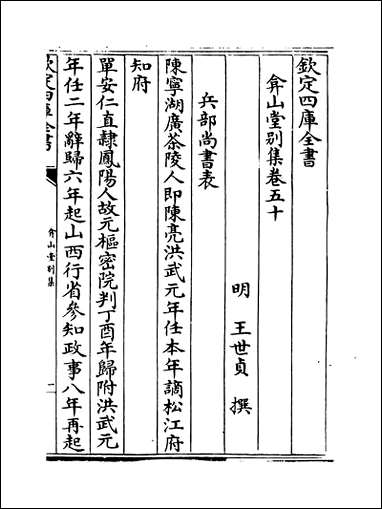 欽定四庫全書
弇山堂別集卷五十
明 王世貞 撰
兵部尚書表
陳寧湖廣茶陵人即陳亮洪武元年任本年謫松江府
知府
單安仁直隸鳳陽人故元樞密院判丁酉年歸附洪武元
年任二年辭歸六年起山西行省參知政事八年再起
欽定四庫全書
弇山堂別集